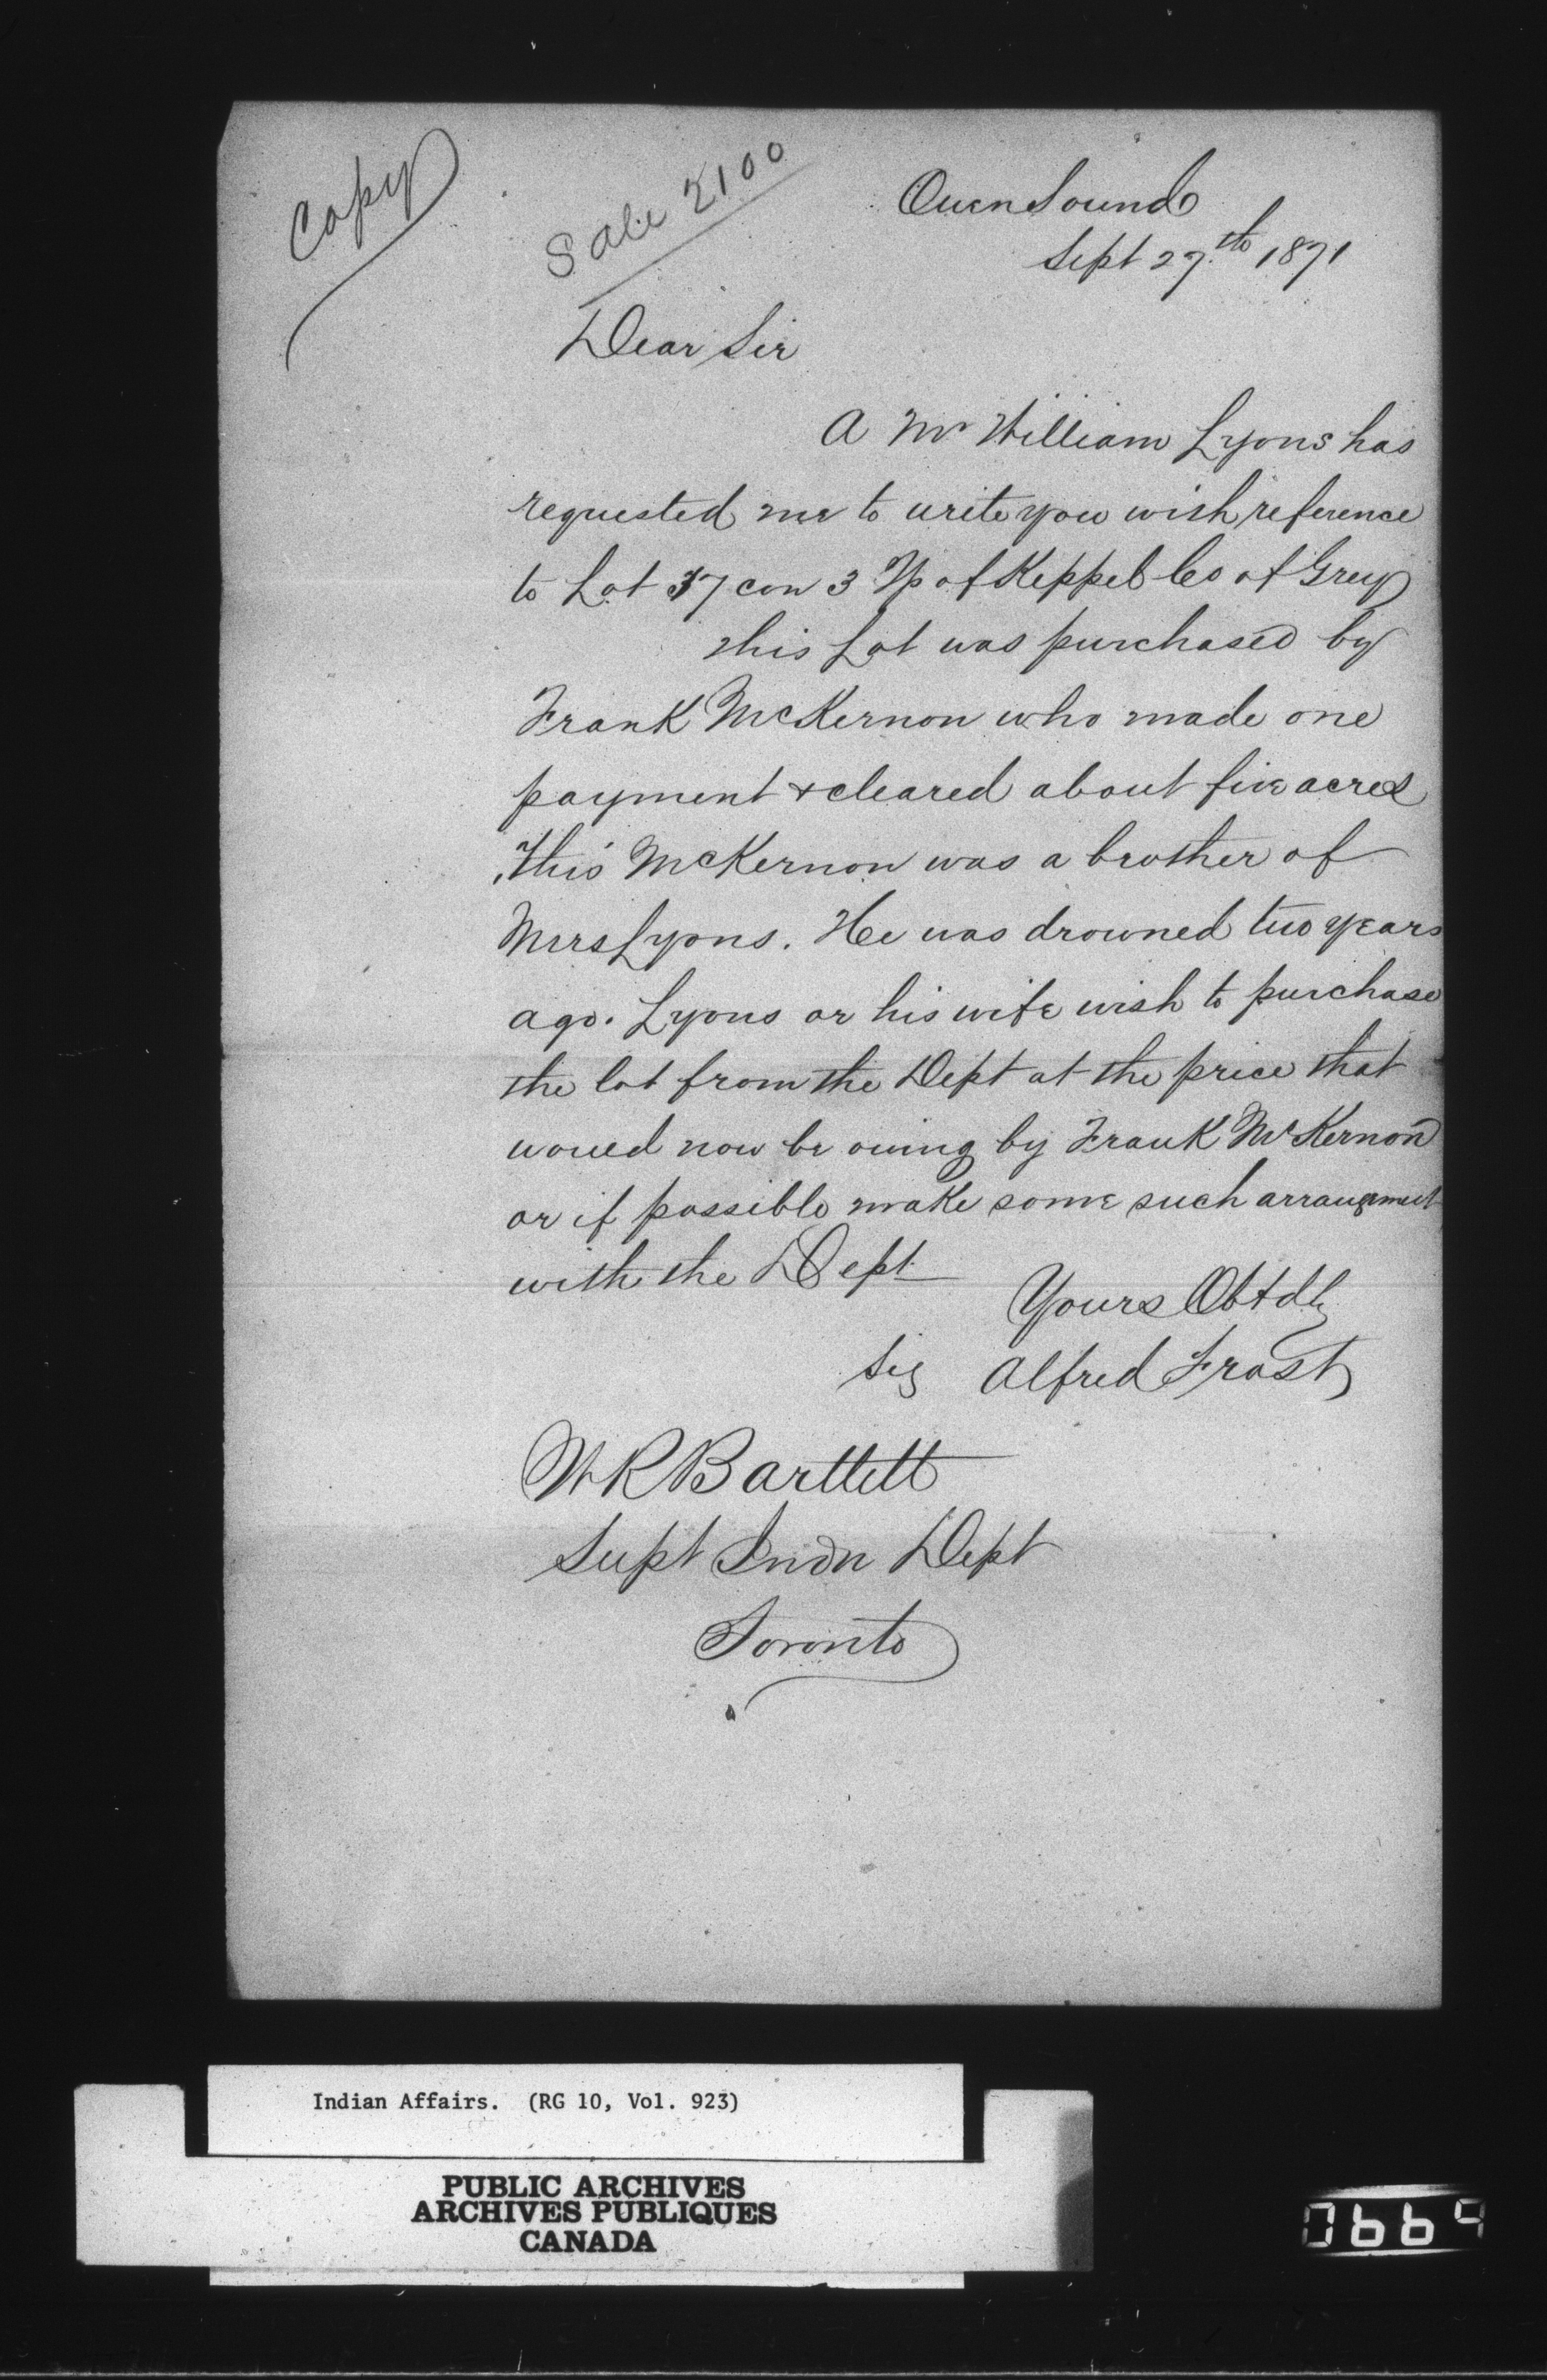 Copy
Sale 2100
Owen Sound
Sept 27th 1871
Dear Sir
A Mr William Lyons has
requested me to write you wish reference
to Lot 37 con 3 Tp of Keppel Co of Grey
This Lot was purchased by
Frank McKernon who made one
payment & cleared about five acres
This McKernon was a brother of
Mrs Lyons. He was drowned two years
ago. Lyons or his wife wish to purchase
the lot from the Dept at the price that
would now be owing by Frank McKernon
or if possible make some such arrangement
with the Dept
Yours Obtdly
Sig Alfred Frost
W R Bartlett
Supt Indn Dept
Toronto
Indian Affairs. (RG 10, Vol. 923)
PUBLIC ARCHIVES
ARCHIVES PUBLIQUES
CANADA